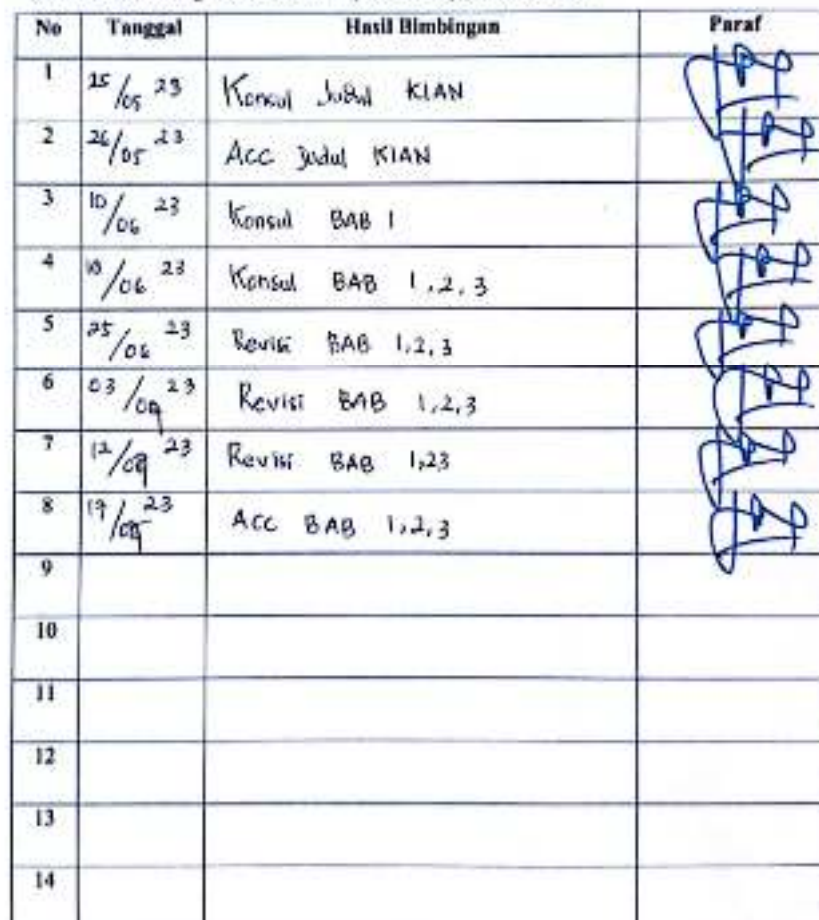 No Tanggal Hasil Bimbingan Paraf
1 25/05 23 Konsul Judul KIAN
2 26/05 23 Acc Judul KIAN
3 10/06 23 Konsul BAB 1
4 10/06 23 Konsul BAB 1,2,3
5 25/06 23 Revisi BAB 1,2,3
6 03/09 23 Revisi BAB 1,2,3
7 12/09 23 Revisi BAB 1,23
8 23 Acc BAB 1,2,3
9
10
11
12
13
14